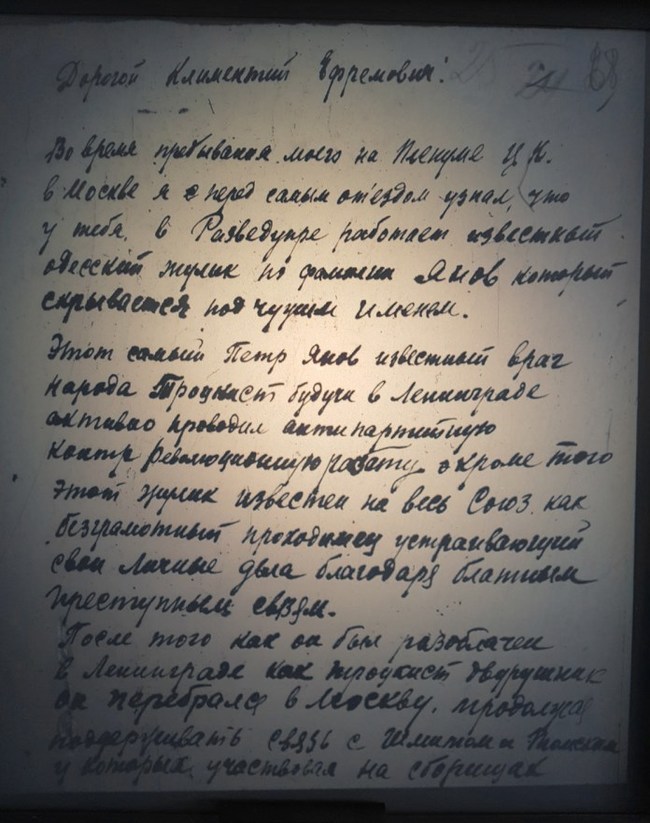 Дорогой Климентий Ефремович!
Во время пребывания моего на Пленуме Ц.К.
в Москве я с перед самым от'ездом узнал, что
у тебя, в Разведупре работает известный
одесский жулик по фамилии Янов который
скрывается под чужим именем.
Этот самый Петр Янов известный враг
народа Троцкист будучи в Ленинграде
активно проводил антипартийную
контр революционную работу, окроме того
этот жулик известен на весь Союз как
безграмотный проходимец устраивающий
свои личные дела благодаря блатным
преступным связям.
После того как он был разоблачен
в Ленинграде как троцкист двурушник
он перебрался в Москву, продолжая
поддерживать связь с Шмитом и
у которых участвовал на сборищах